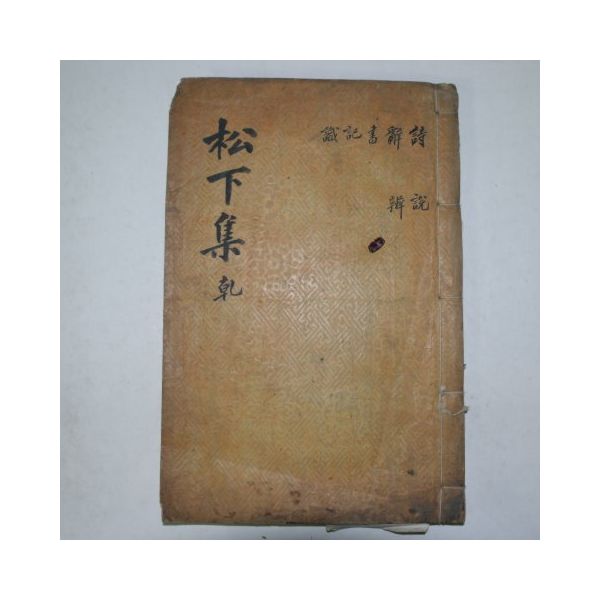 詩辭書記識
說辨
松下集 乾